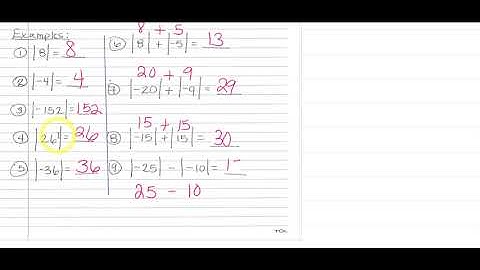 Examples:
① |8| = 8
② |-4| = 4
③ |-152| = 152
④ |26| = 26
⑤ |-36| = 36
8 + 5
⑥ |8| + |-5| = 13
20 + 9
⑦ |-20| + |-9| = 29
15 + 15
⑧ |-15| + |15| = 30
⑨ |-25| - |-10| = 1
25 - 10